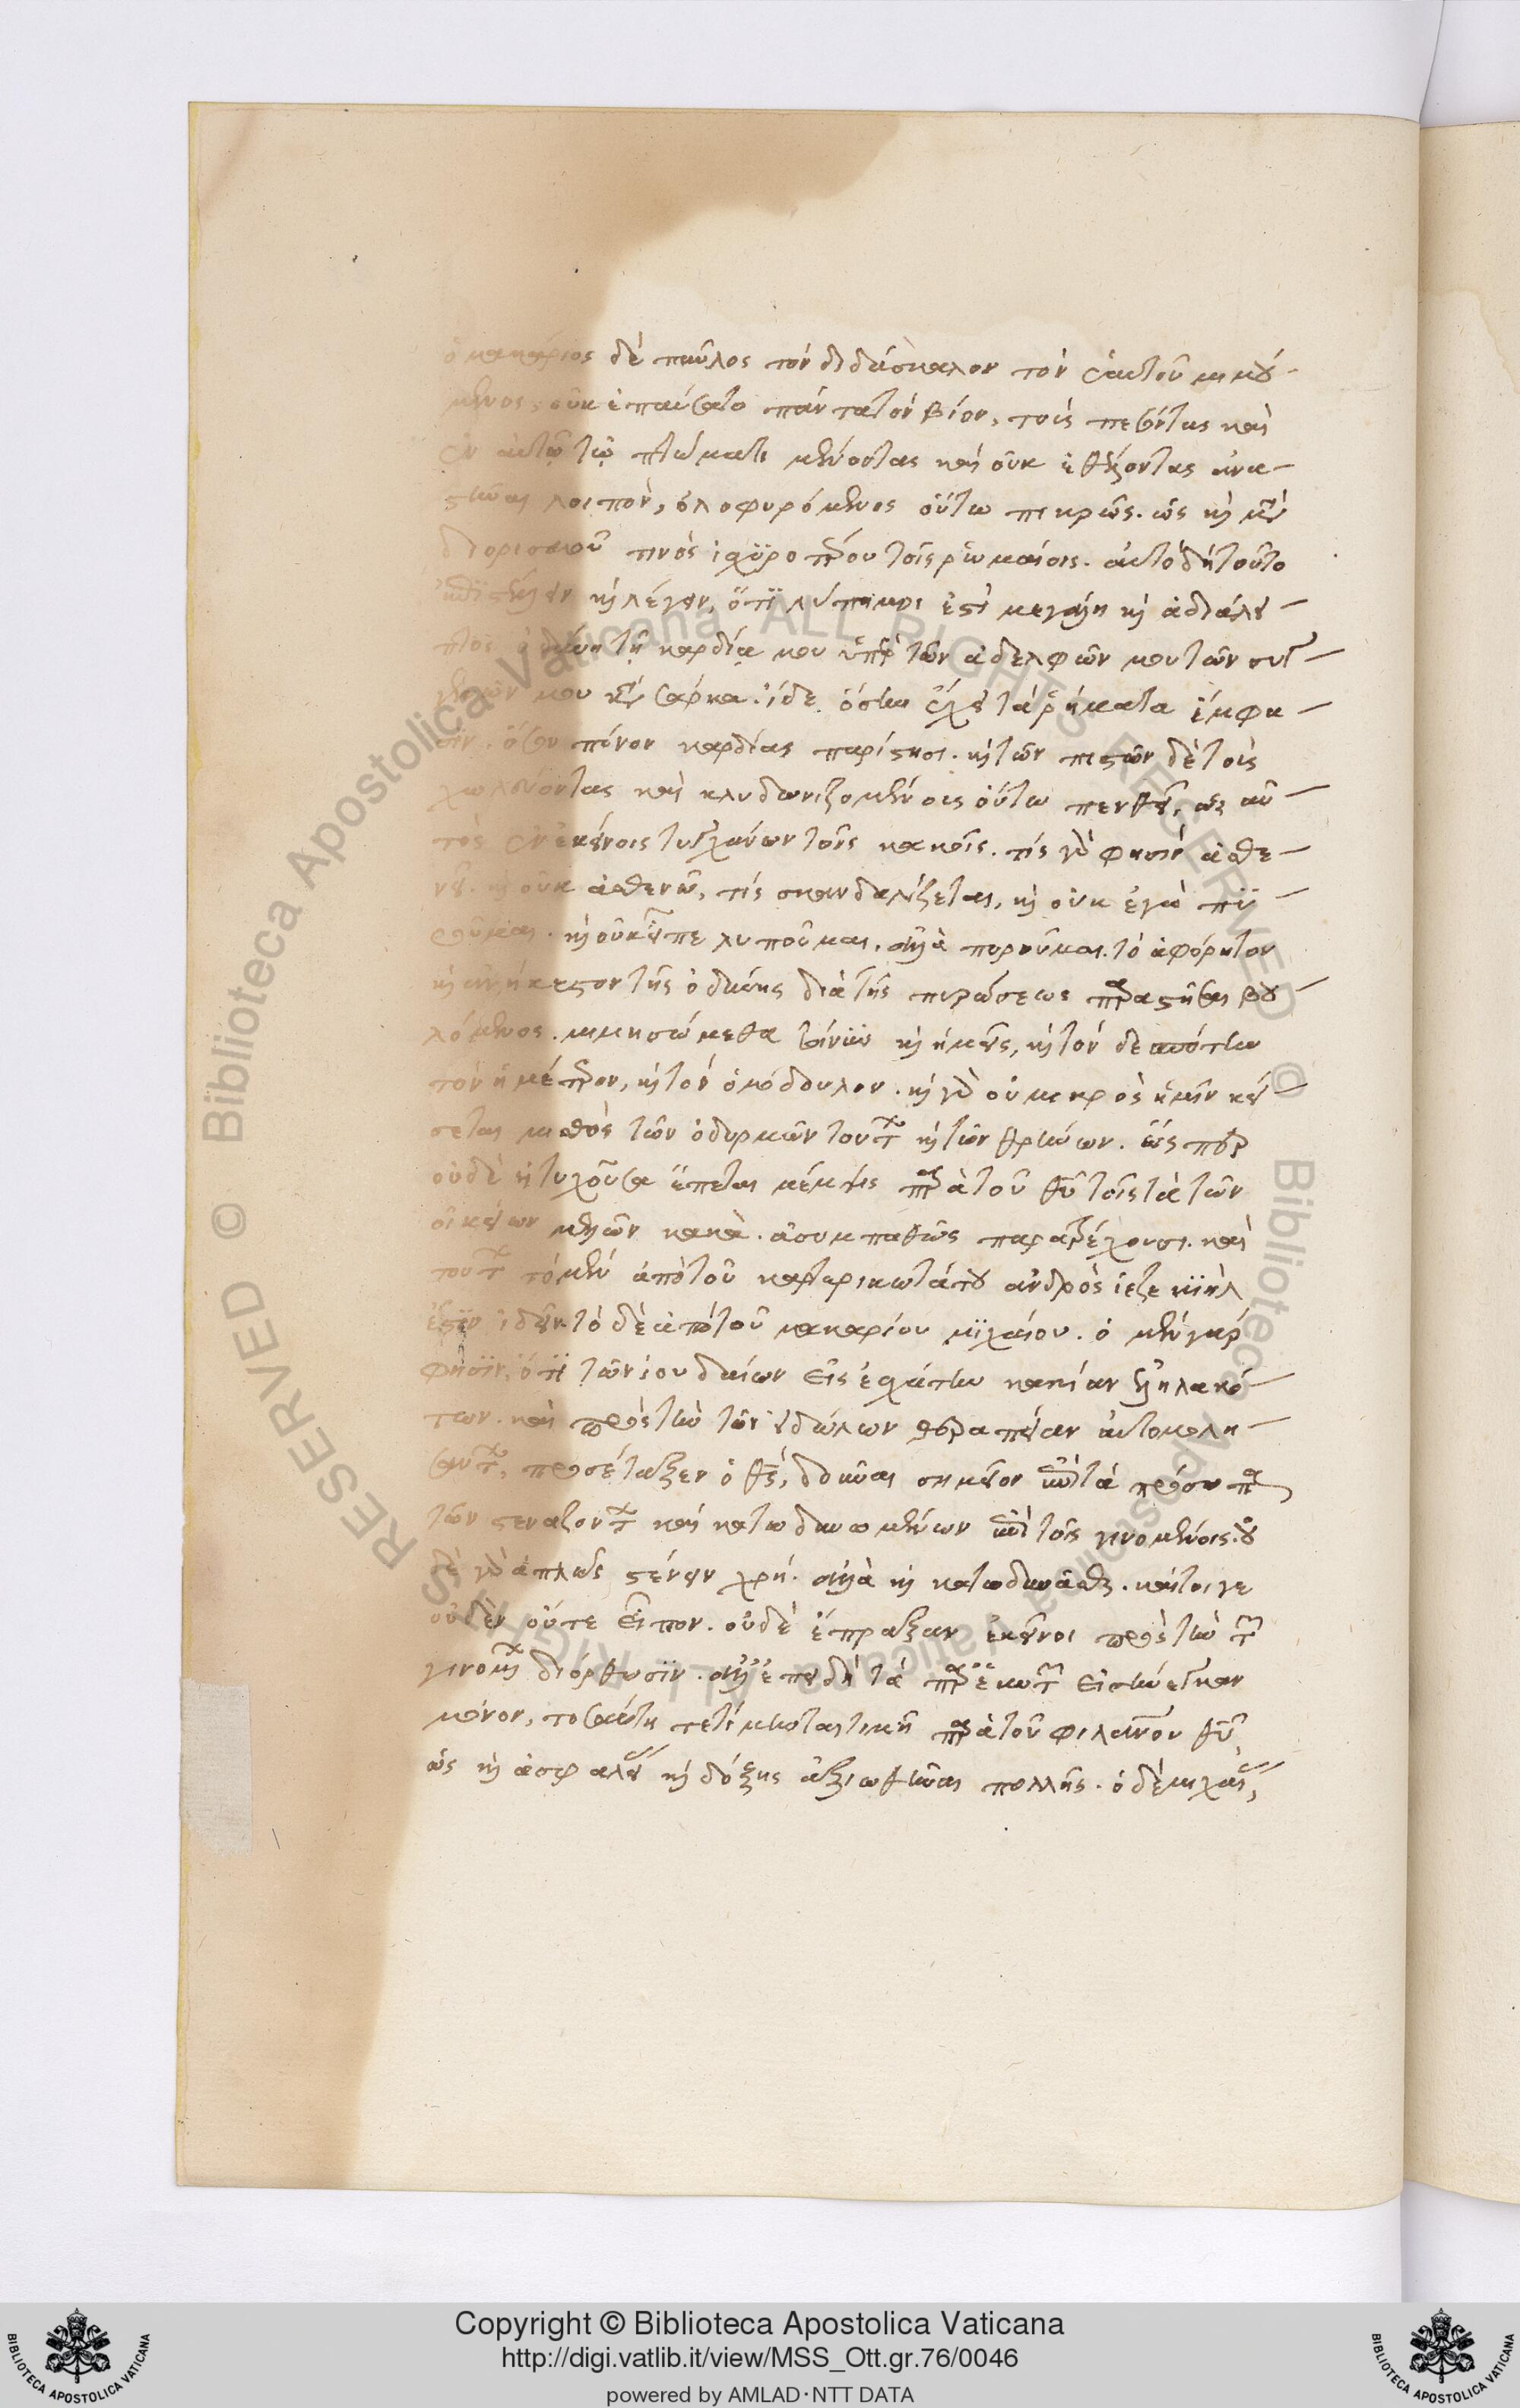 ὁ μακάριος δὲ παῦλος τὸν διδάσκαλον τὸν ἑαυτοῦ μιμού-
μενος, οὐκ ἐπαύσατο πάντα τὸν βίον, τοὺς πεσόντας καὶ
ἐν αὐτῷ τῷ πτώματι μένοντας καὶ οὐκ ἐθέλοντας ἀνα-
στῆναι λοιπὸν, ὀλοφυρόμενος οὕτω πικρῶς. ὡς καὶ μετὰ
διορισμοῦ τινὸς ἰσχυροτέρου τοῖς ῥωμαίοις. αὐτὸ δὴ τοῦτο
ἐπιστέλλειν καὶ λέγειν, ὅτι λύπη μοι ἐστὶ μεγάλη καὶ ἀδιάλει-
πτος ὀδύνη τῇ καρδίᾳ μου ὑπὲρ τῶν ἀδελφῶν μου τῶν συγ-
γενῶν μου κατὰ σάρκα. ἴδε ὅσην ἔχει τὰ ῥήματα ἔμφα-
σιν. ὅσον πόνον καρδίας παρίστησι. καὶ τῶν πιστῶν δὲ τοὺς
χωλεύοντας καὶ κλυδωνιζομένοις οὕτω πενθεῖ, ὡς αὐ-
τὸς ἐν ἐκείνοις τυγχάνων τοῖς κακοῖς. τίς γὰρ φησὶν ἀσθε-
νεῖ. καὶ οὐκ ἀσθενῶ, τίς σκανδαλίζεται, καὶ οὐκ ἐγὼ πυ-
ροῦμαι. καὶ οὐκ εἶπε λυποῦμαι, ἀλλὰ πυροῦμαι. τὸ ἀφόρητον
καὶ ἀνήκεστον τῆς ὀδύνης διὰ τῆς πυρώσεως παραστῆσαι βου-
λόμενος. μιμησώμεθα τοίνυν καὶ ἡμεῖς, καὶ τὸν δεσπότην
τὸν ἡμέτερον, καὶ τὸν ὁμόδουλον. καὶ γὰρ οὐ μικρὸς ἡμῖν κεί-
σεται μισθὸς τῶν ὀδυρμῶν τούτων καὶ τῶν θρήνων. ὥσπερ
οὐδὲ ἡ τυχοῦσα ἕπεται μέμψις παρὰ τοῦ θεοῦ τοῖς τὰ τῶν
οἰκείων μελῶν κακὰ. ἀσυμπαθῶς παρατρέχουσι. καὶ
τοῦτο τὸ μὲν ἀπὸ τοῦ καρτερικωτάτου ἀνδρὸς ἰεζεκιὴλ
ἔστιν ἰδεῖν. τὸ δὲ ἀπὸ τοῦ μακαρίου μιχαίου. ὁ μὲν γάρ
φησιν, ὅτι τῶν ἰουδαίων εἰς ἐσχάτην κακίαν ἐληλακό-
των. καὶ πρὸς τὴν τῶν εἰδώλων θεραπείαν αὐτομολη-
σάντων, προσέταξεν ὁ θεὸς, δοθῆναι σημεῖον ἐπὶ τὰ πρόσωπα
τῶν στεναζόντων καὶ κατωδυνωμένων ἐπὶ τοῖς γινομένοις. οὐ
δὲ γὰρ ἁπλῶς στένειν χρή. ἀλλὰ καὶ κατωδυνᾶσθαι. καίτοι γε
οὐδὲν οὔτε εἶπον. οὐδὲ ἔπραξαν ἐκεῖνοι πρὸς τὴν τῶν
γινομένων διόρθωσιν. ἀλλ' ἐπειδὴ τὰ παρ' ἑαυτῶν εἰσήνεγκαν
μόνον, τοσαύτη τετίμηνται τιμῇ παρὰ τοῦ φιλανθρώπου θεοῦ,
ὡς καὶ ἀσφαλείας καὶ δόξης ἀξιωθῆναι πολλῆς. ὁ δὲ μιχαίας,
Copyright © Biblioteca Apostolica Vaticana
http://digi.vatlib.it/view/MSS_Ott.gr.76/0046
powered by AMLAD·NTT DATA